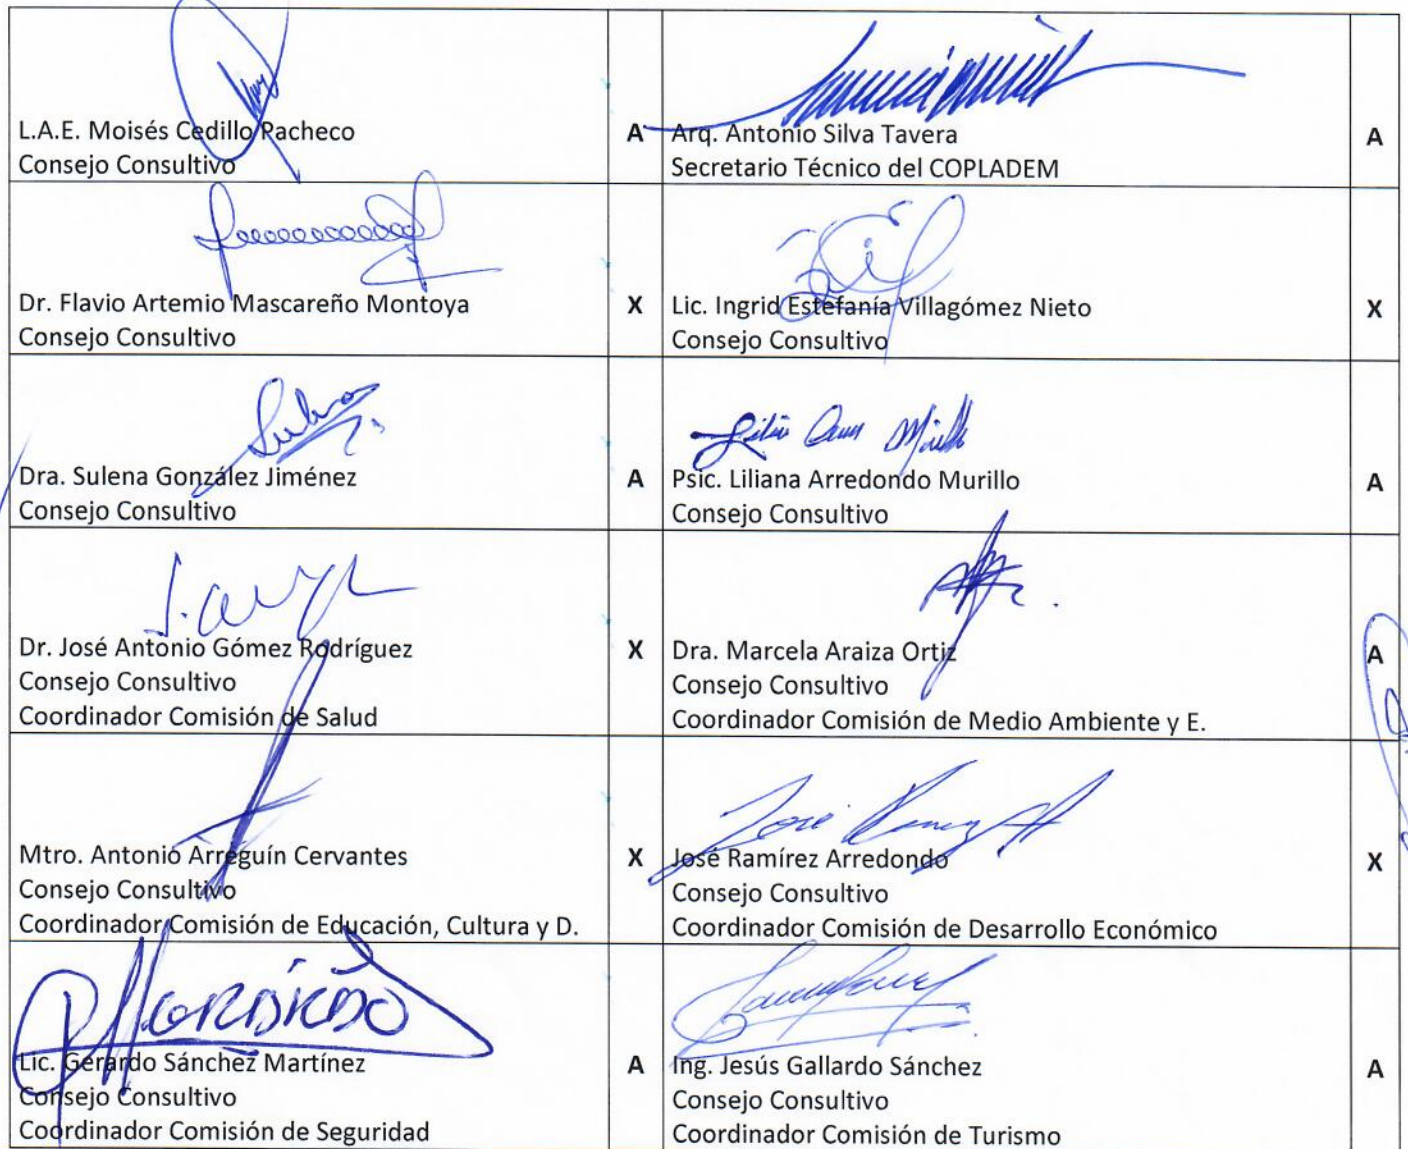 L.A.E. Moisés Cedillo Pacheco
Consejo Consultivo
A
Arq. Antonio Silva Tavera
Secretario Técnico del COPLADEM
A
Dr. Flavio Artemio Mascareño Montoya
Consejo Consultivo
X
Lic. Ingrid Estefanía Villagómez Nieto
Consejo Consultivo
X
Dra. Sulena González Jiménez
Consejo Consultivo
A
Psic. Liliana Arredondo Murillo
Consejo Consultivo
A
Dr. José Antonio Gómez Rodríguez
Consejo Consultivo
Coordinador Comisión de Salud
X
Dra. Marcela Araiza Ortiz
Consejo Consultivo
Coordinador Comisión de Medio Ambiente y E.
A
Mtro. Antonio Arreguín Cervantes
Consejo Consultivo
Coordinador Comisión de Educación, Cultura y D.
X
José Ramírez Arredondo
Consejo Consultivo
Coordinador Comisión de Desarrollo Económico
X
Lic. Gerardo Sánchez Martínez
Consejo Consultivo
Coordinador Comisión de Seguridad
A
Ing. Jesús Gallardo Sánchez
Consejo Consultivo
Coordinador Comisión de Turismo
A